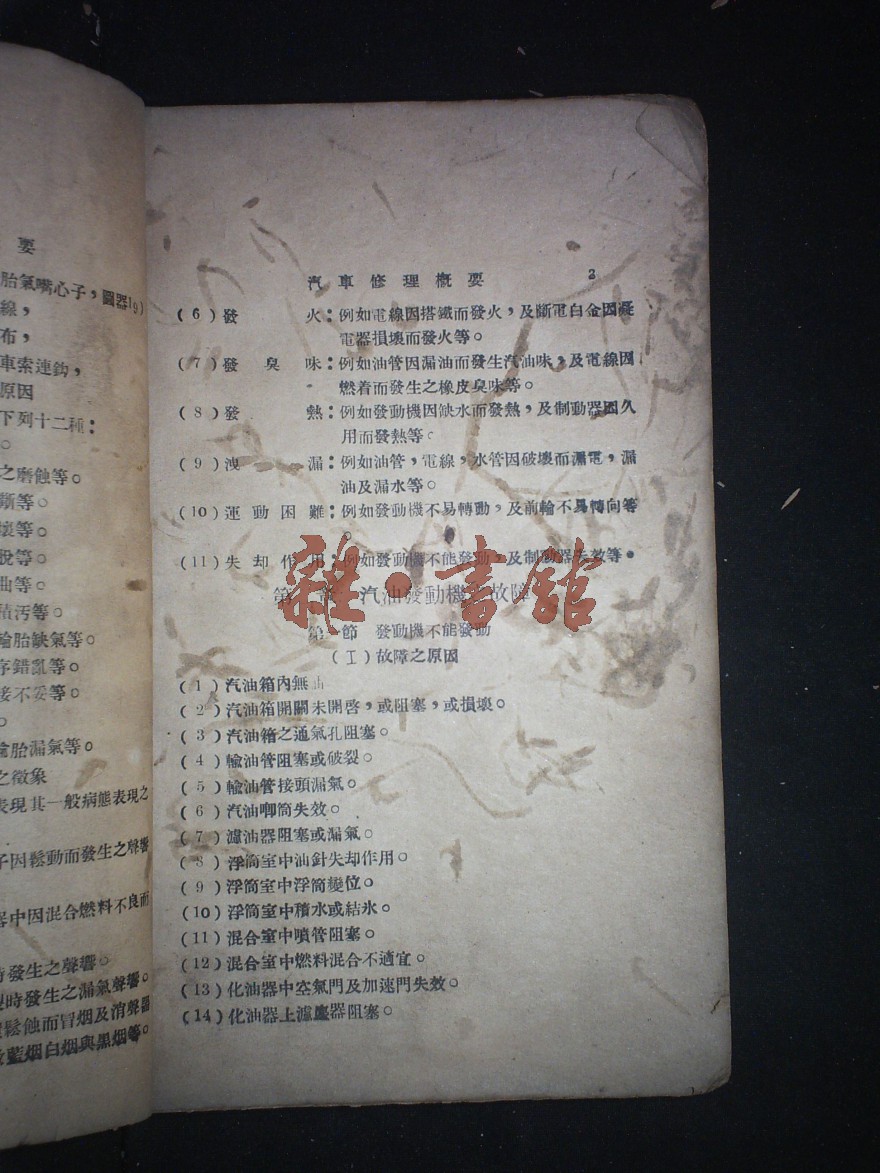 要
胎氣嘴心子，圖器19)
線，
布，
車索連鈎，
原因
下列十二種：
。
之磨蝕等。
斷等。
壞等。
脫等。
曲等。
積汚等。
輪胎缺氣等。
序錯亂等。
接不妥等。
。
輪胎漏氣等。
之徵象
表現其一般病態表現之
子因鬆動而發生之聲響
器中因混合燃料不良而
時發生之聲響。
時發生之漏氣聲響。
鬆蝕而冒烟及消聲器
藍烟白烟與黑烟等。
汽車修理概要 3
(6)發火：例如電線因搭鐵而發火，及斷電白金因凝
電器損壞而發火等。
(7)發臭味：例如油管因漏油而發生汽油味，及電線因
燃着而發生之橡皮臭味等。
(8)發熱：例如發動機因缺水而發熱，及制動器因久
用而發熱等。
(9)洩漏：例如油管，電線，水管因破壞而漏電，漏
油及漏水等。
(10)運動困難：例如發動機不易轉動，及前輪不易轉向等
。
(11)失却作用：例如發動機不能發動，及制動器失效等。
雜·書館
第 汽油發動機之故障
第 節 發動機不能發動
(I)故障之原因
(1)汽油箱內無油
(2)汽油箱開關未開啓，或阻塞，或損壞。
(3)汽油箱之通氣孔阻塞。
(4)輸油管阻塞或破裂。
(5)輸油管接頭漏氣。
(6)汽油唧筒失效。
(7)濾油器阻塞或漏氣。
(8)浮筒室中油針失却作用。
(9)浮筒室中浮筒變位。
(10)浮筒室中積水或結氷。
(11)混合室中噴管阻塞。
(12)混合室中燃料混合不適宜。
(13)化油器中空氣門及加速門失效。
(14)化油器上濾塵器阻塞。